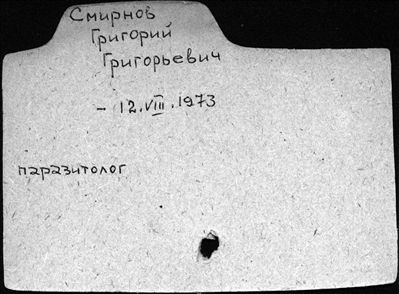 Смирнов
Григорий
Григорьевич
– 12.VIII.1973
паразитолог